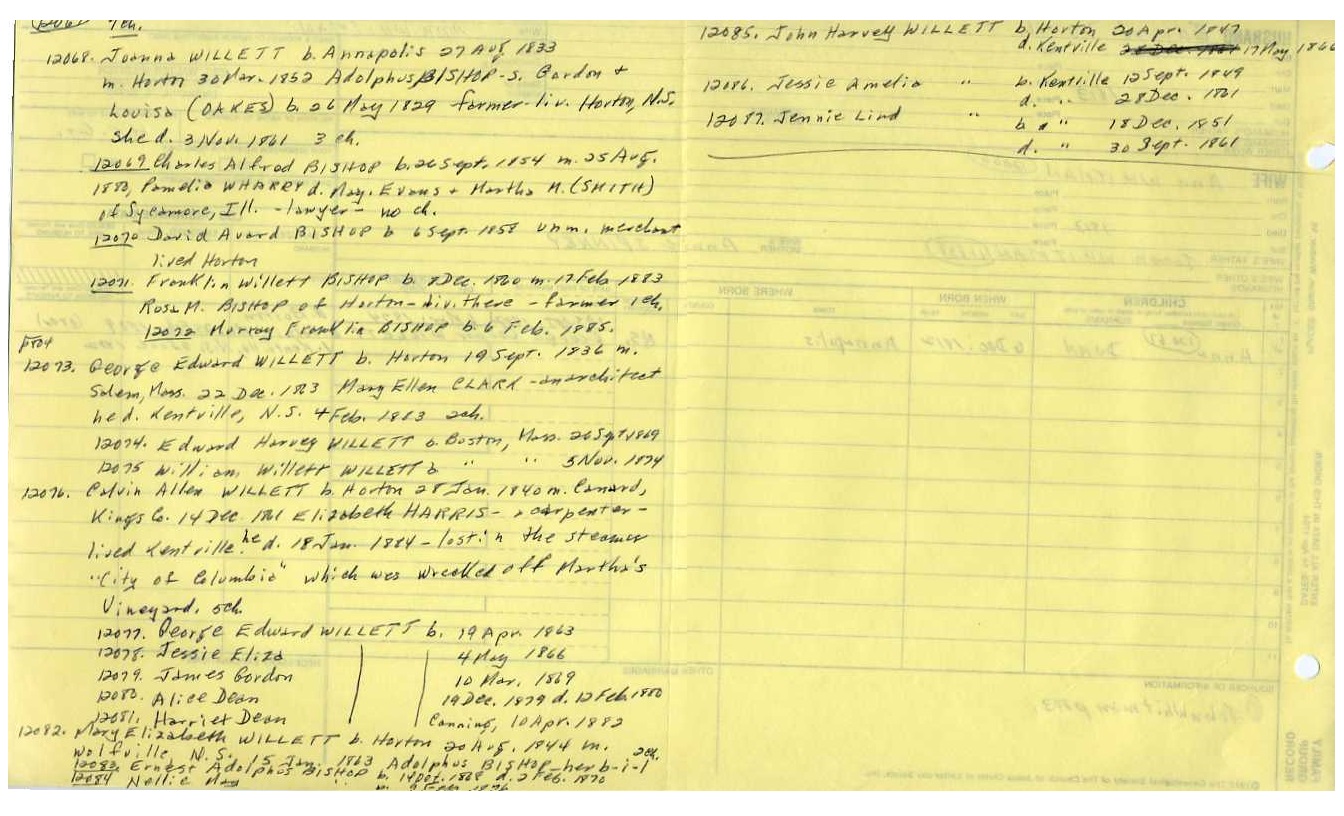 7ch.
12068. Joanna WILLETT b. Annapolis 27 Aug 1833
m. Horton 30 Mar. 1852 Adolphus BISHOP - s. Gordon +
Louisa (OAKES) b. 26 May 1829 farmer - liv. Horton, N.S.
she d. 3 Nov. 1861 3 ch.
12069 Charles Alfred BISHOP b. 26 Sept. 1854 m. 25 Aug.
1880, Pamelia WHARRY d. May. Evans + Martha M. (SMITH)
of Sycamore, Ill. - lawyer - no ch.
12070 David Avard BISHOP b 6 Sept. 1858 unm. merchant
lived Horton
12071. Franklin Willett BISHOP b. 8 Dec. 1860 m. 17 Feb. 1883
Rosa M. BISHOP of Horton - liv. there - farmer 1 ch.
12072 Murray Franklin BISHOP b. 6 Feb. 1885.
p804
12073. George Edward WILLETT b. Horton 19 Sept. 1836 m.
Salem, Mass. 22 Dec. 1863 Mary Ellen CLARK - an architect
he d. Kentville, N.S. 4 Feb. 1883 2ch.
12074. Edward Harvey WILLETT b. Boston, Mass. 26 Sept 1869
12075 William Willett WILLETT b " " 5 Nov. 1874
12076. Calvin Allen WILLETT b. Horton 28 Jan. 1840 m. Canard,
Kings Co. 14 Dec. 1861 Elizabeth HARRIS - a carpenter -
lived Kentville. he d. 18 Jan. 1884 - lost in the steamer
"City of Columbia" which was wrecked off Martha's
Vineyard. 5ch.
12077. George Edward WILLETT b. 19 Apr. 1863
12078. Jessie Eliza 4 May 1866
12079. James Gordon 10 Mar. 1869
12080. Alice Dean 19 Dec. 1879 d. 12 Feb. 1880
12081. Harriet Dean Canning, 10 Apr. 1882
12082. Mary Elizabeth WILLETT b. Horton 20 Aug. 1844 m.
Wolfville, N.S. 5 Jan. 1863 Adolphus BISHOP - her b-i-l 2ch.
12083 Ernest Adolphus BISHOP b. 14 Oct. 1868 d. 2 Feb. 1870
12084 Nellie May
12085. John Harvey WILLETT b. Horton 20 Apr. 1847
d. Kentville 17 May 1866
12086. Jessie Amelia " b. Kentville 12 Sept. 1849
d. " 28 Dec. 1861
12087. Jennie Lind " b " " 18 Dec. 1851
d. " 30 Sept. 1861